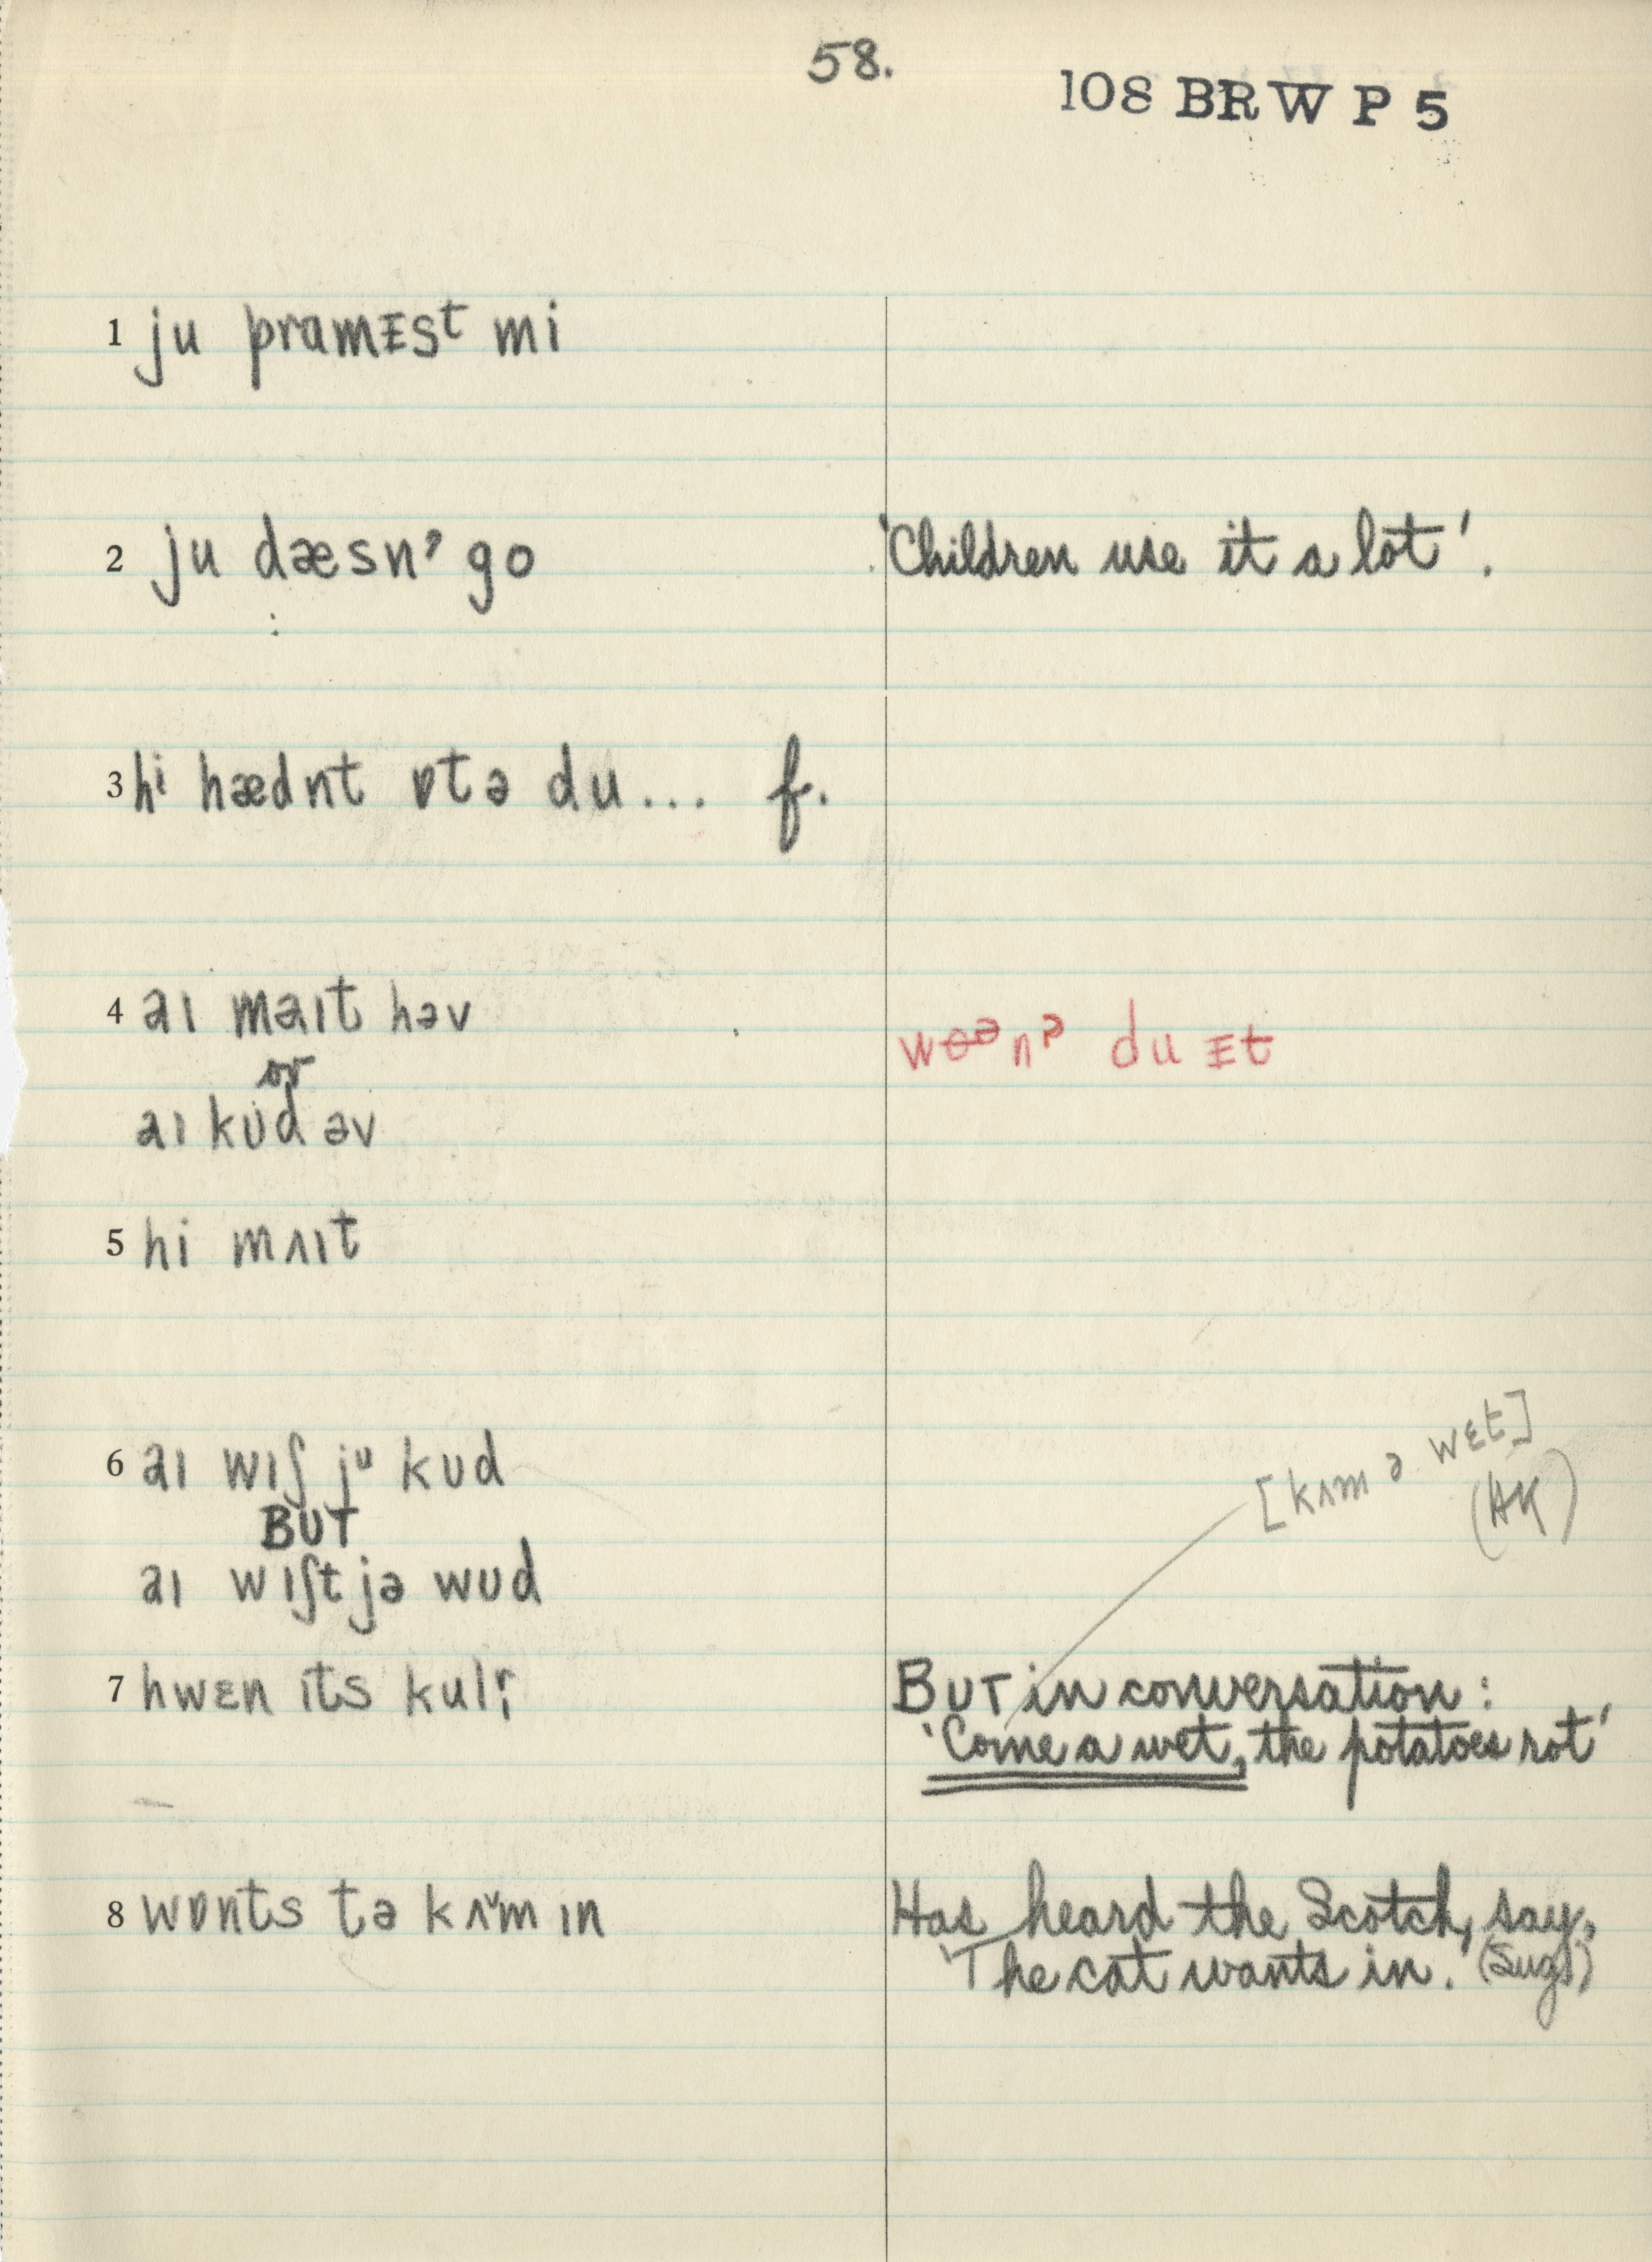 58.
108 BRW P 5
1 ju pramɪst mi
2 ju dæsnˀ go
'Children use it a lot'.
3 hi hædnt ɒtə du... f.
4 aɪ maɪt həv
or
aɪ kʊd əv
du ɪt
5 hi mʌɪt
6 aɪ wɪʃ ju kʊd
BUT
aɪ wɪʃt jə wʊd
[kʌm ə wɛt]
(AK)
7 hwɛn ɪts
BUT in conversation:
'Come a wet, the potatoes rot'
8 wɒnts tə kʌm ɪn
Has heard the Scotch, say,
'The cat wants in.' (Sug.)